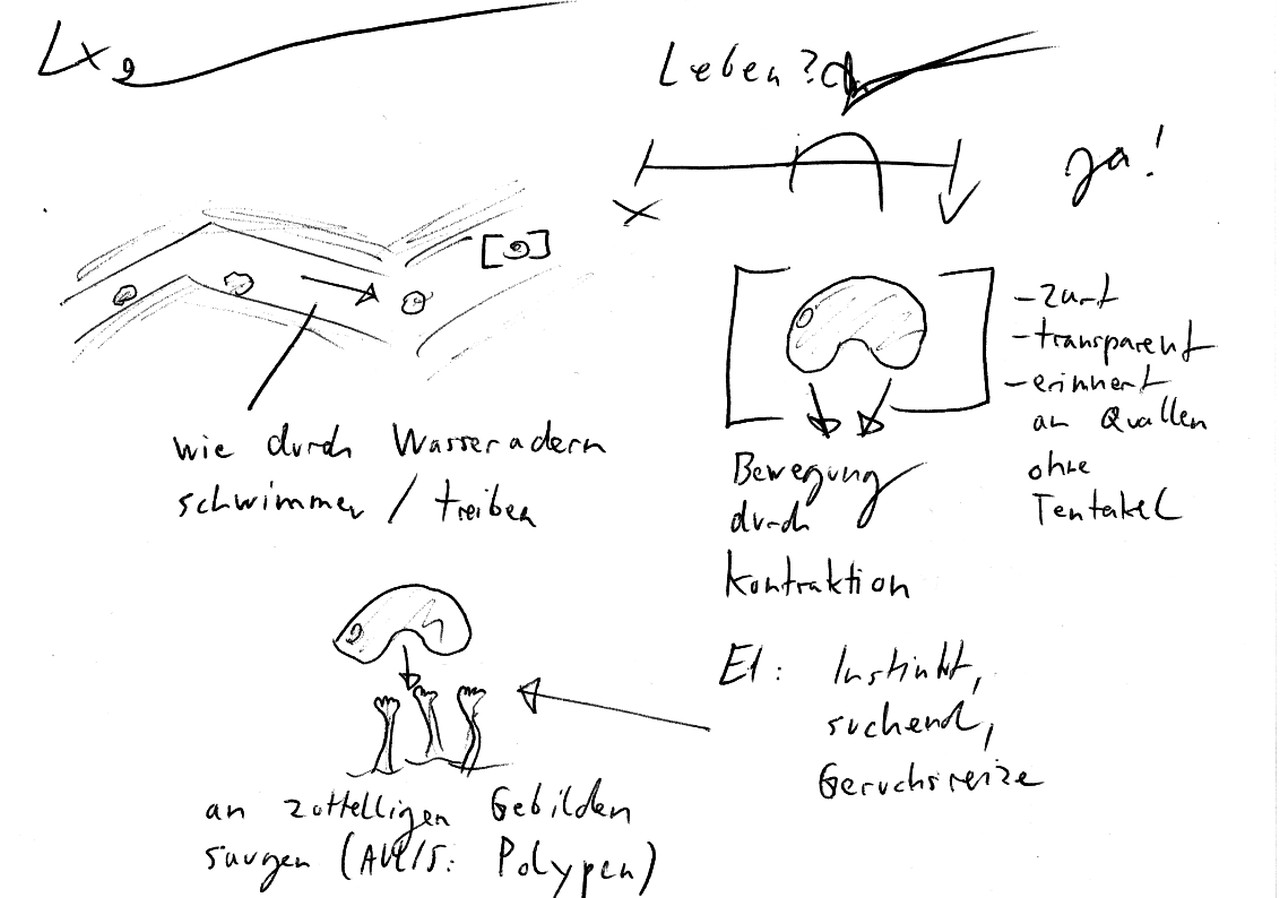 Leben?
ja!
- zart
- transparent
- erinnert
an Quallen
ohne
Tentakel
wie durch Wasseradern
schwimmen / treiben
Bewegung
durch
Kontraktion
EI: Instinkt,
suchend,
Geruchsreize
an zottelligen Gebilden
saugen (AUL/S: Polypen)